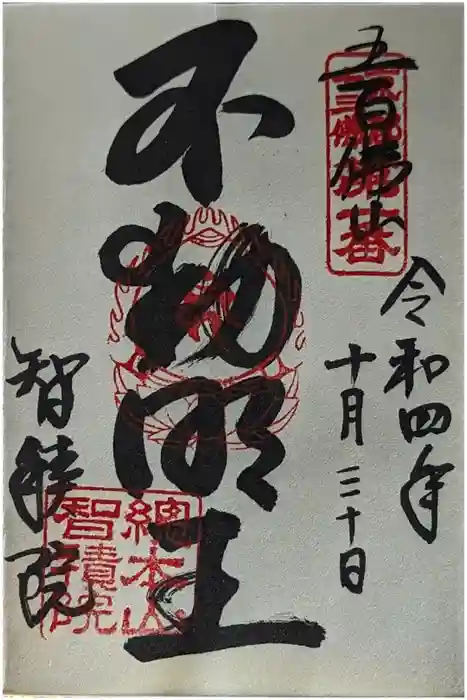 五百佛山
令和四年
十月三十日
不動明王
智積院
總本山
智積院